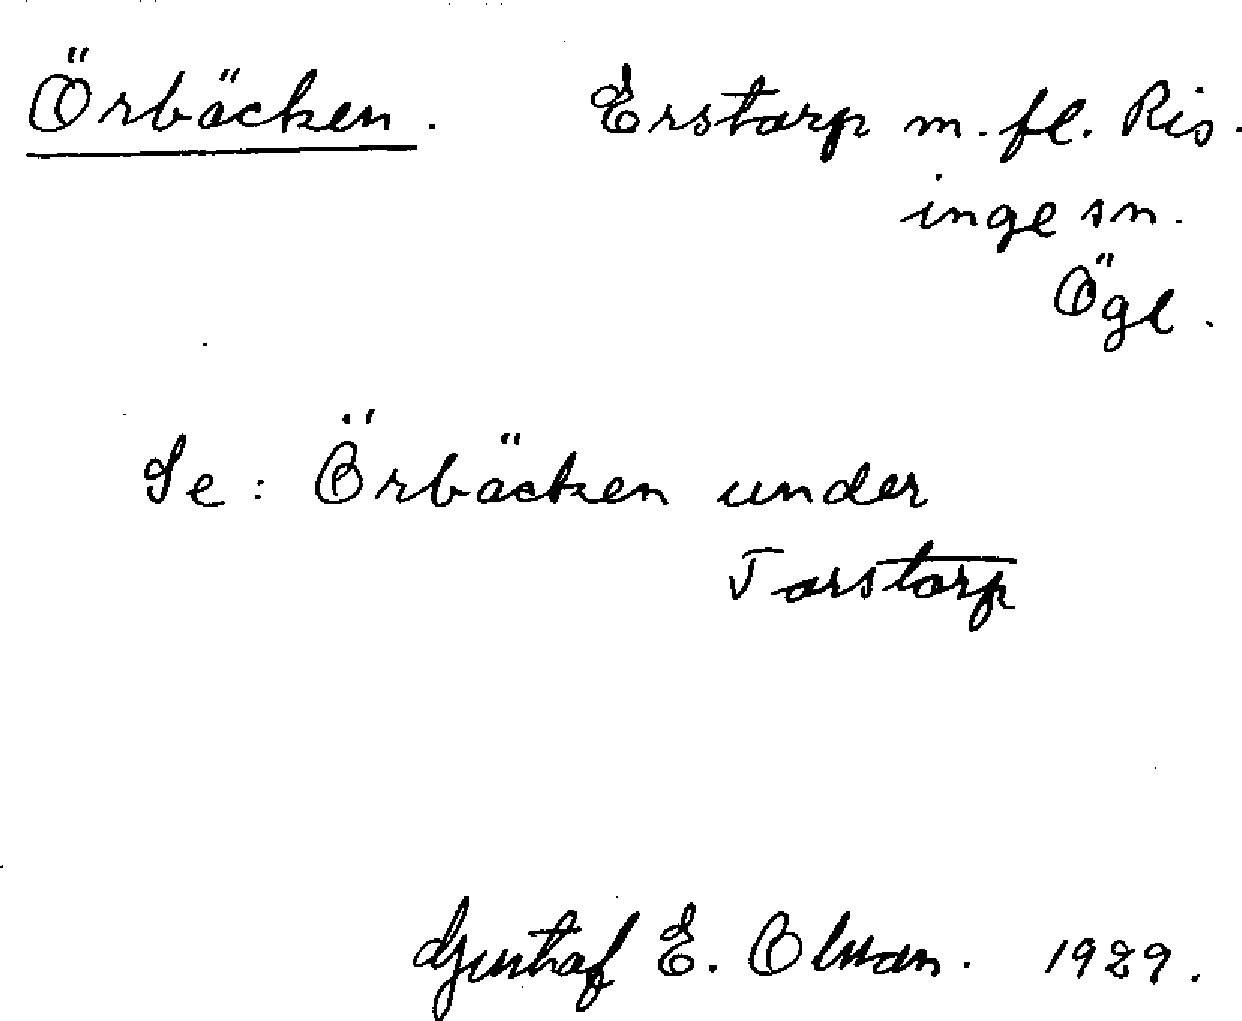 Örbäcken. Erstorp m. fl. Ris-
inge sn.
Ögl.
Se: Örbäcken under
Torstorp
Gustaf E. Olsson. 1929.